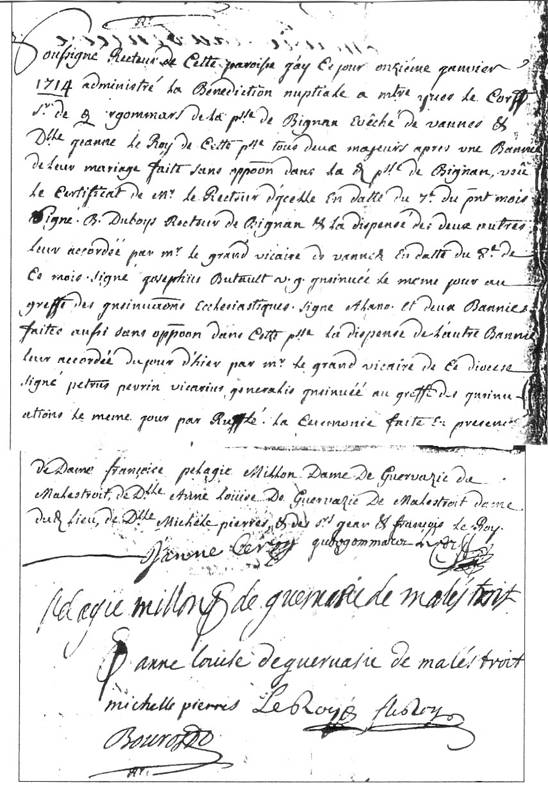 Soussigné Recteur de Cette paroise gay Ce jour onzième janvier
1714 administré la Benediction nuptiale a mtre yves le Corff
sr. de & rgommars de la psse de Bignan Evêché de vannes &
Dlle geanne le Roy de Cette psse tous deux majeurs apres une Bannie
de leur mariage faite sans oppoon dans la de psse de Bignan, veüe
le Certificat de mr. le Recteur d'ycelle En datte du 7e. du pnt mois
Signe. B. Duboys Recteur de Bignan & la dispense des deux autres
leur accordée par mr. le grand vicaire de vannes En datte du 8e. de
Ce mois. signé josephus Butault v. g. ynsinuée le meme jour au
greffe des ynsinuaons Ecclesiastiques. signe Ahano. et deux Bannies
faites aussi sans oppoon dans Cette psse la dispense de l'autre Bannie
leur accordée du jour d'hier par mr. le grand vicaire de Ce diocese
signé petrus pevrin vicarius generalis ynsinuée au greffe des ynsinu
ations le meme jour par Ruffelé. la Ceremonie faite En presence
de Dame françoise pelagie Millon Dame De Guervazie de
Malestroit, de Dlle Anne louise De Guervazie De Malestroit dame
dud. lieu, de Dlle Michele pierres, & des srs gean & françois Le Roy.
Janne Leroy
pelagie millon de guervasie de malés troit
anne louise de guervasie de malés troit
michelle pierres Le Roy f le Roy